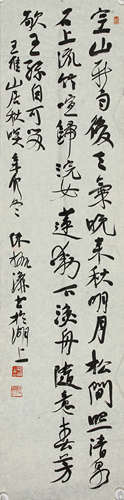 空山新雨後天氣晚來秋明月松間照清泉
石上流竹喧歸浣女蓮動下漁舟隨意春芳
歇王孫自可留
王維山居秋暝
書於湖上